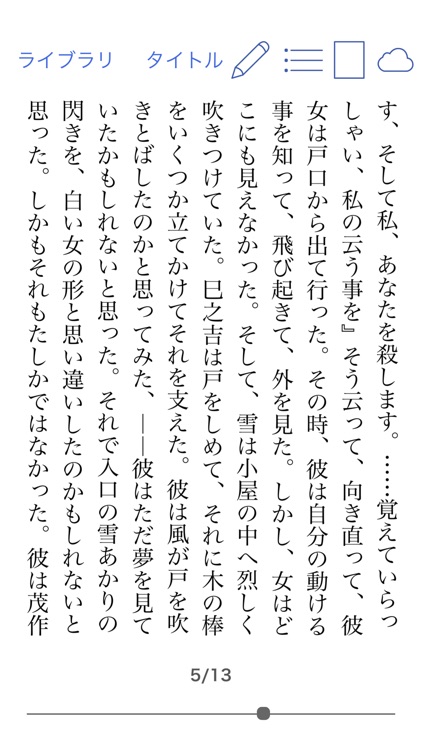 ライブラリ タイトル
す、そして私、あなたを殺します。……覚えていらっ
しゃい、私の云う事を』そう云って、向き直って、彼
女は戸口から出て行った。その時、彼は自分の動ける
事を知って、飛び起きて、外を見た。しかし、女はど
こにも見えなかった。そして、雪は小屋の中へ烈しく
吹きつけていた。巳之吉は戸をしめて、それに木の棒
をいくつか立てかけてそれを支えた。彼は風が戸を吹
きとばしたのかと思ってみた、――彼はただ夢を見て
いたかもしれないと思った。それで入口の雪あかりの
閃きを、白い女の形と思い違いしたのかもしれないと
思った。しかもそれもたしかではなかった。彼は茂作
5/13